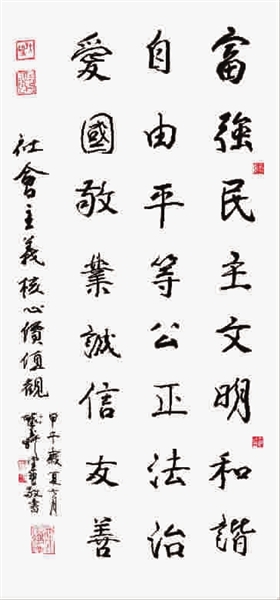 富強民主文明和諧
自由平等公正法治
愛國敬業誠信友善
社會主義核心價值觀
甲午歲夏七月
敬書